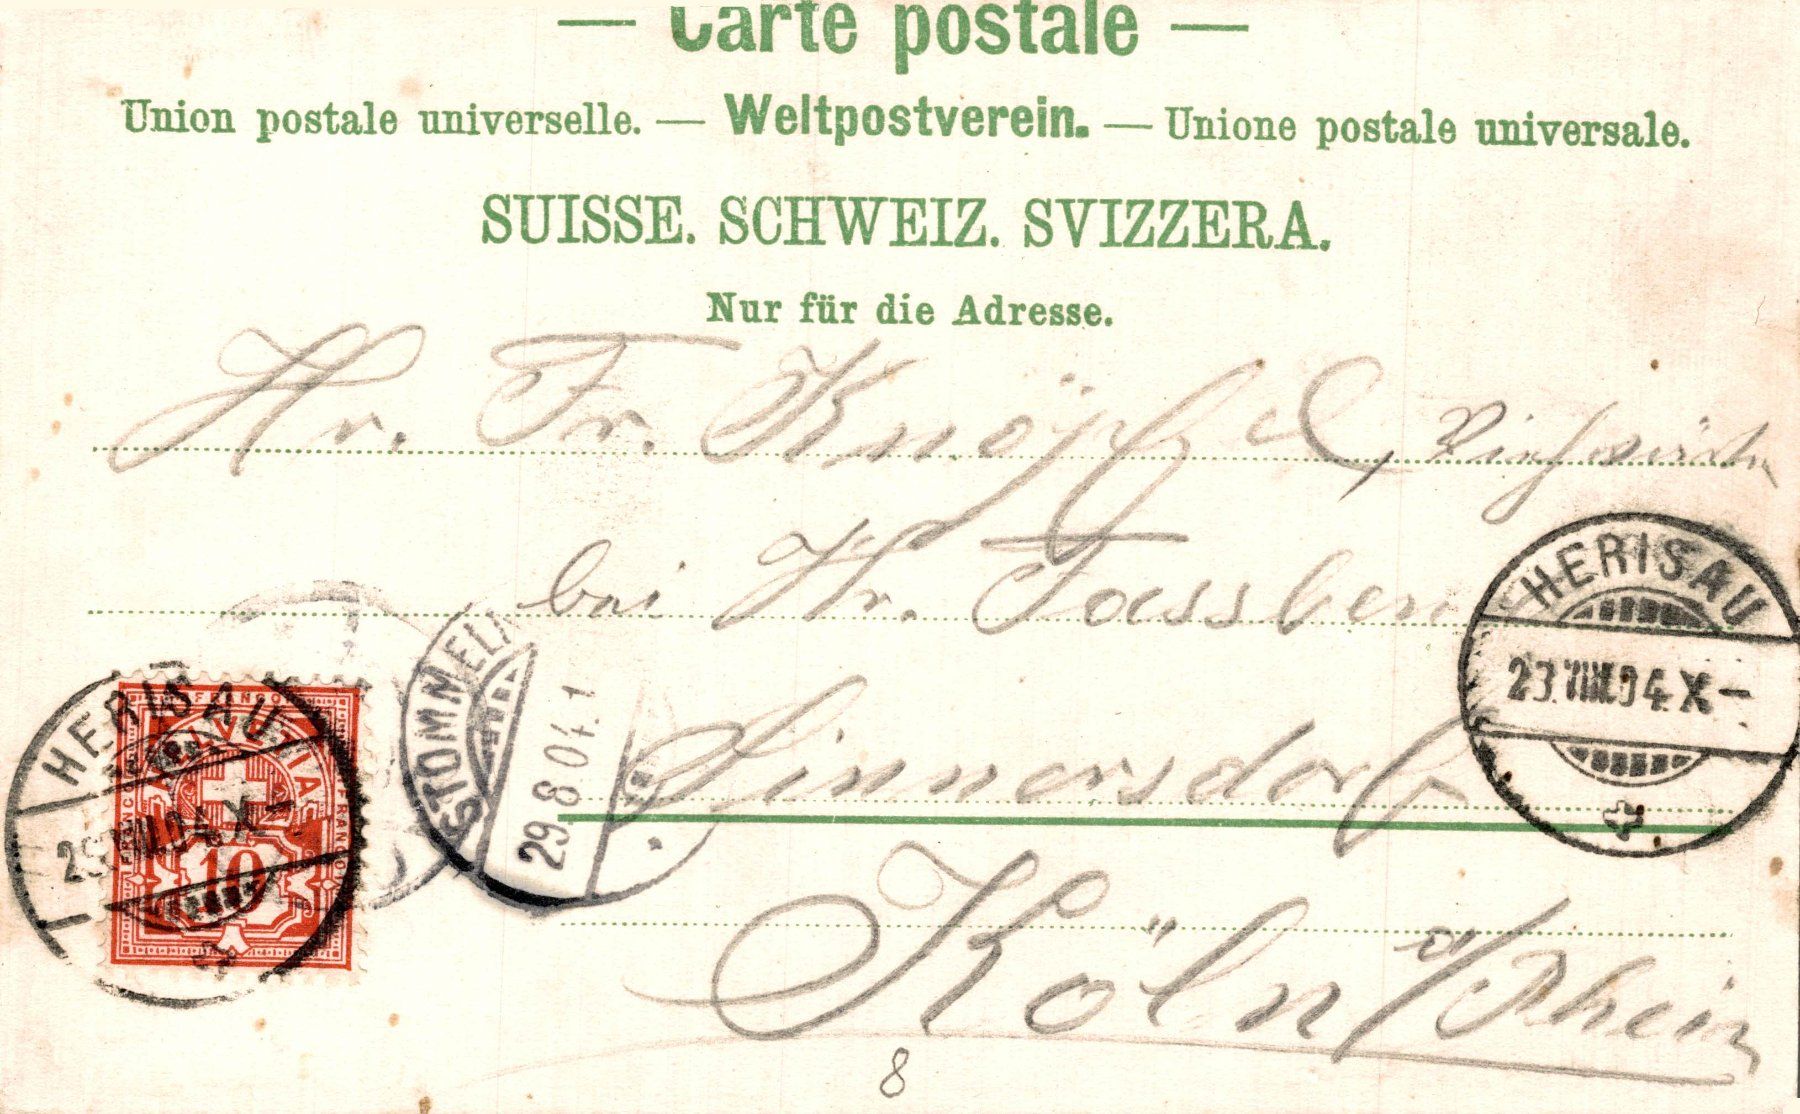 — Carte postale —
Union postale universelle. — Weltpostverein. — Unione postale universale.
SUISSE. SCHWEIZ. SVIZZERA.
Nur für die Adresse.
Hr. Fr.
bei Hr. Fassben
Sinnersdorf
Köln a/Rhein
8
HERISAU
23.VIII.04.X–
STOMMELN
29.8.04.1
HERISAU
VIII.04.X–
FRANCO
HELVETIA
FRANCO
FRANCO
10